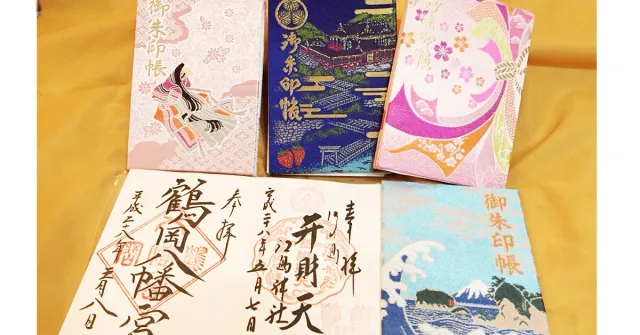 御朱印帳
御朱印帳
御朱印帳
奉拝
弁財天
江島神社
平成二十八年五月七日
奉拝
鶴岡八幡宮
平成二八年五月八日
御朱印帳